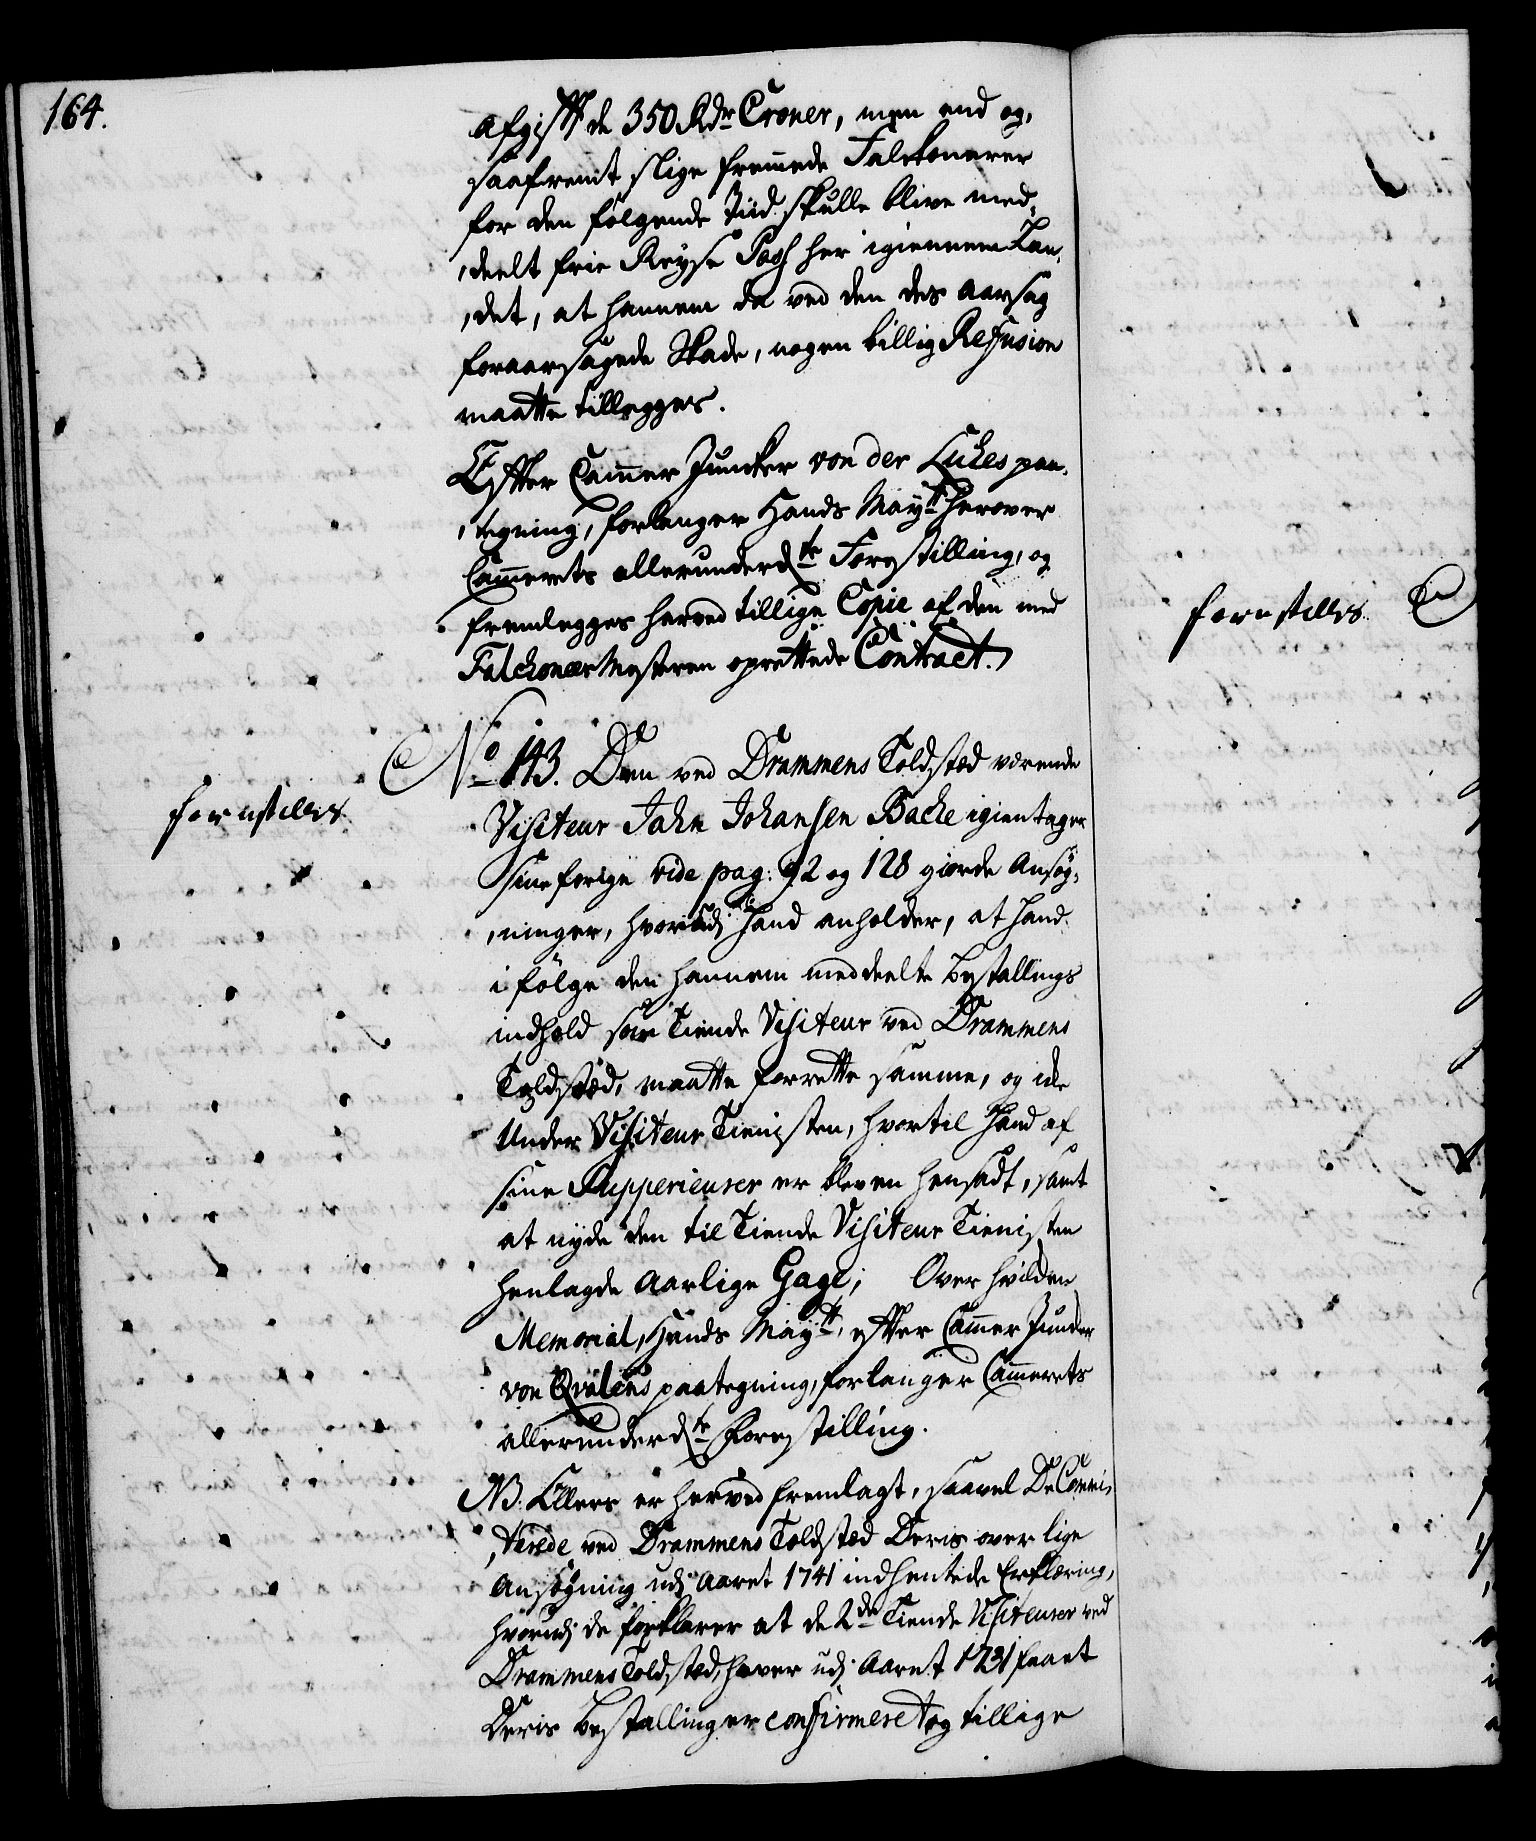 164.
afgifft de 350 Rdr Croner, men end og,
saafremt slige fremmede Falckonerer
for den fölgende Tiid skulle blive med,
,deelt frie Reyse Pass her igiennem Lan,
,det, at hannem da ved den des aarsag
foraarsagede Skade, nogen billig Refusion
maatte tillegges.
Effter Cammer Juncker von der Lühes paa,
,tegning, forlanger Hands Mayts herover
Cammerets allerunderdste Forestilling, og
fremlegges herved tillige Copie af den med
Falckoneer Mesteren oprettede Contract.
forestilles
forestilles
No 143. Den ved Drammens Toldsted værende
Visiteur Jahn Johansen Backe igientager
sine forige vide pag: 92 og 128 giorde Ansøg,
,ninger, hvorudj Hand anholder, at Hand
i fölge den hannem meddeelte Bestallings
indhold som Tiende Visiteur ved Drammens
Toldsted, maatte forrette samme, og icke
Under Visiteur Tienisten, hvortil Hand af
sine Supperieurer er bleven hensadt, samt
at nyde den til Tiende Visiteur Tienisten
henlagde Aarlige Gage; Over hvilden
Memorial, Hands Mayts, effter Cammer Juncker
von Qvalens paategning, forlanger Cammerets
allerunderdste Forestilling.
NB. Ellers er herved fremlagt, saavel De Commi,
,terede ved Drammens Toldsted Deris over lige
Ansøgning udj Aaret 1741 indhentede Erklæring,
hvorudj de forklarer at de 2de Tiende Visiteurer ved
Drammens Toldsted, haver udj Aaret 1731 faaet
Deris Bestallinger confirmeret og tillige